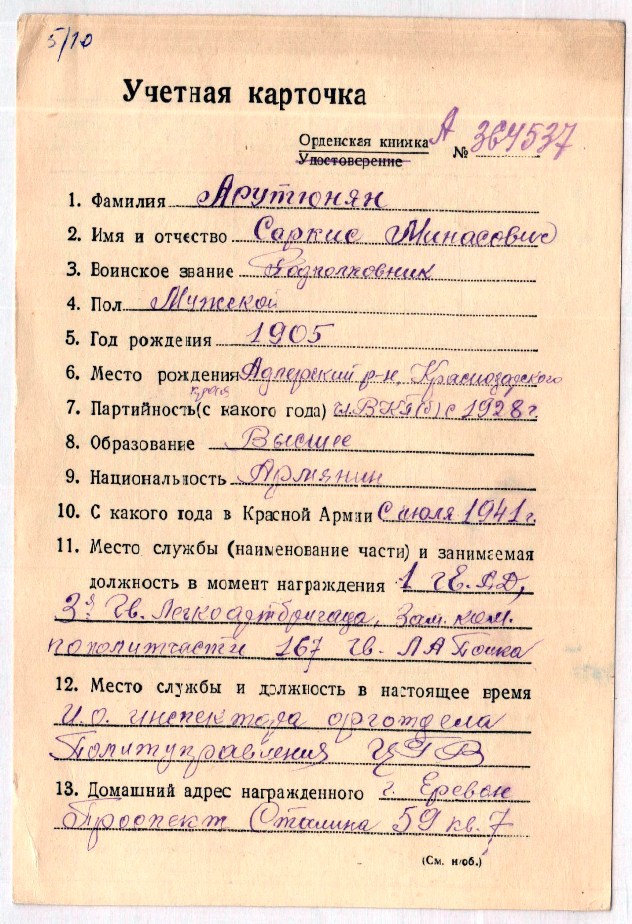 5/10
Учетная карточка
Орденская книжка А
Удостоверение № 364537
1. Фамилия Арутюнян
2. Имя и отчество Саркис Минасович
3. Воинское звание Подполковник
4. Пол Мужской
5. Год рождения 1905
6. Место рождения Адлерский р-н, Краснодарского
края
7. Партийность (с какого года) чл. ВКП(б) с 1928 г
8. Образование Высшее
9. Национальность Армянин
10. С какого года в Красной Армии с июля 1941 г.
11. Место службы (наименование части) и занимаемая
должность в момент награждения 1 гв.
3я Гв. Легкоартбригада, Зам. ком.
по политчасти 167 гв. ЛАПолка
12. Место службы и должность в настоящее время
И.о. инспектора орготдела
Политуправления ЦГВ
13. Домашний адрес награжденного г. Ереван
Проспект Сталина 59 кв. 7
(См. н/об.)